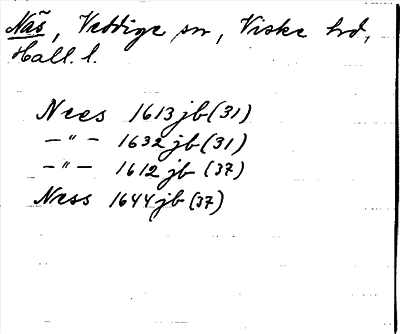 Näs, Veddige sn, Viske hd,
Hall. l.
Nees 1613 jb (31)
—"— 1632 jb (31)
—"— 1612 jb (37)
Næss 1644 jb (37)